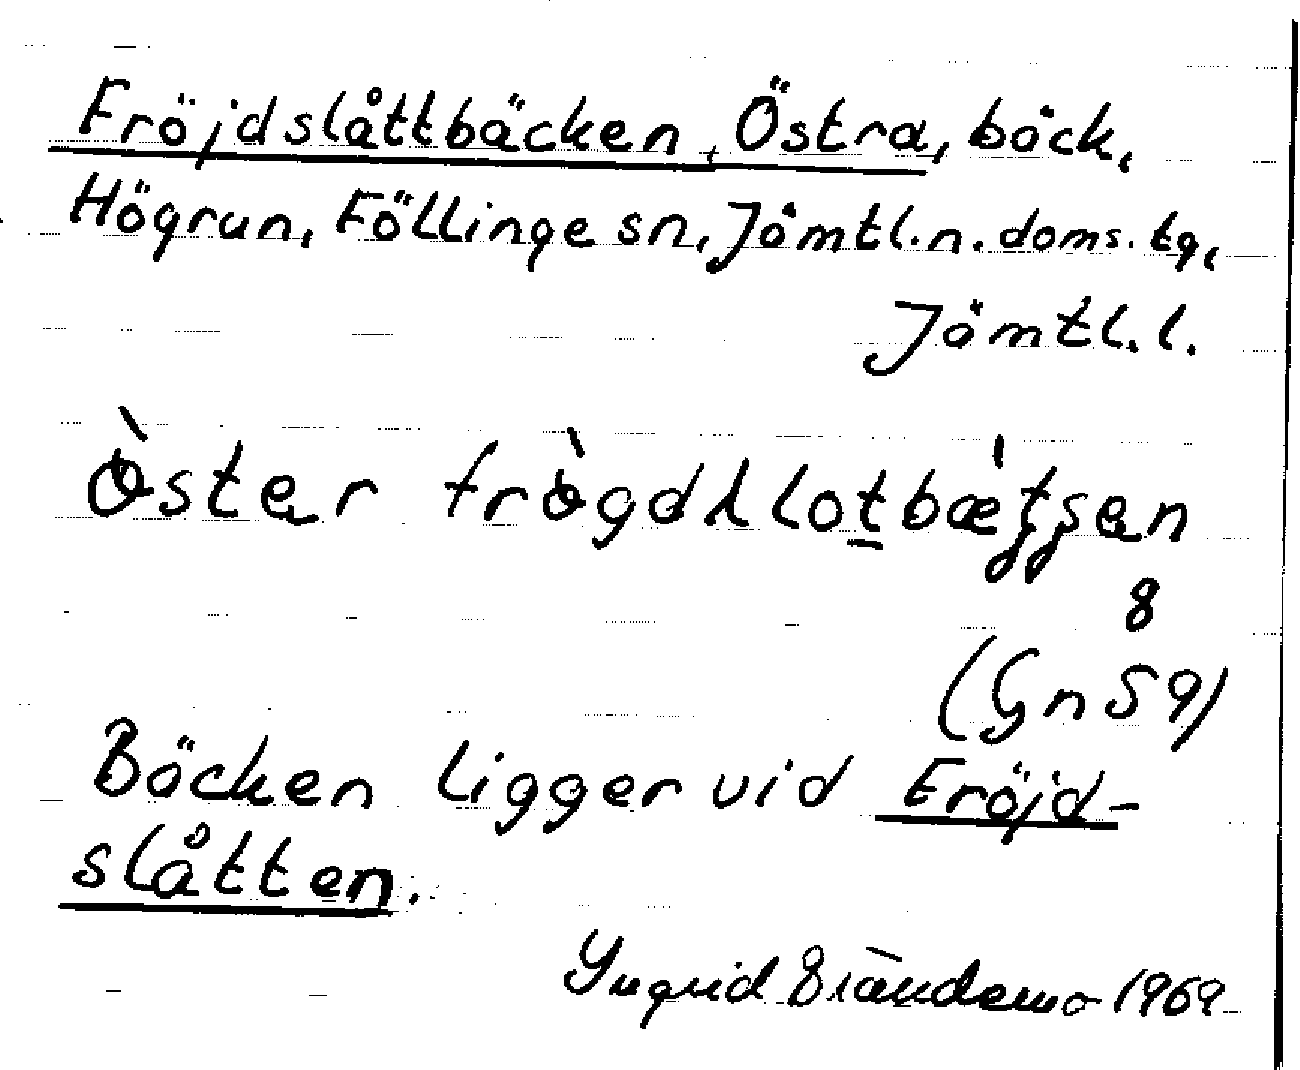 Fröjdslåttbäcken, Östra, bäck,
Högrun, Föllinge sn, Jämtl.n.doms.tg,
Jämtl.l.
8
(Gn 59)
Bäcken ligger vid Fröjd-
slåtten.
Ingrid Brändemo 1969